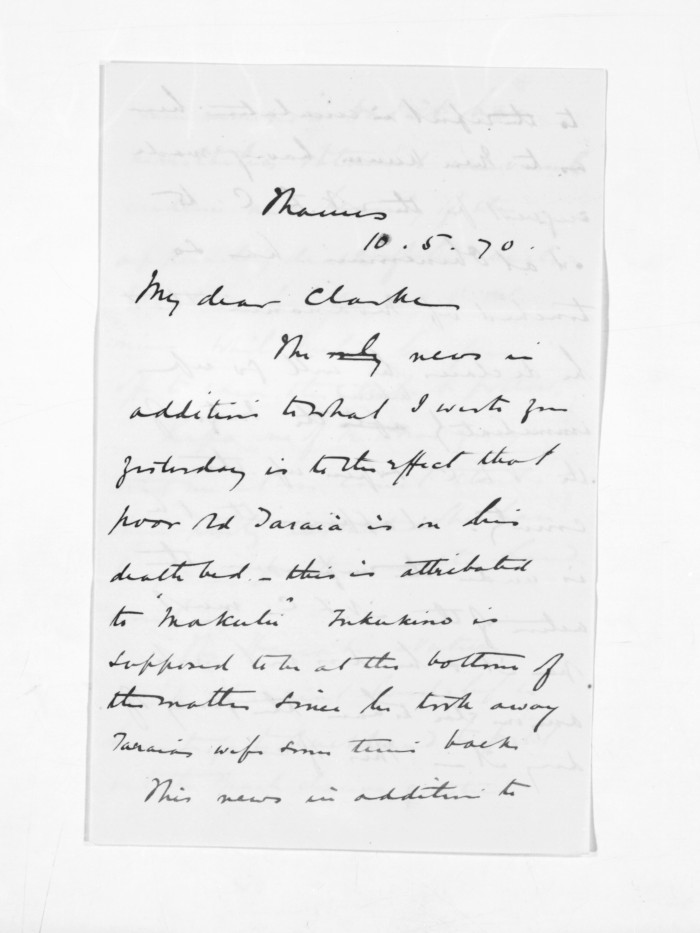 Thames
10.5.70.
My dear Clarke
The only news in
addition to what I wrote you
yesterday is to the effect that
poor old Taraia is on his
death bed - this is attributed
to "Makutu" Tukukino is
supposed to be at the bottom of
the matter since he took away
Taraia's wife some time back
This news in addition to